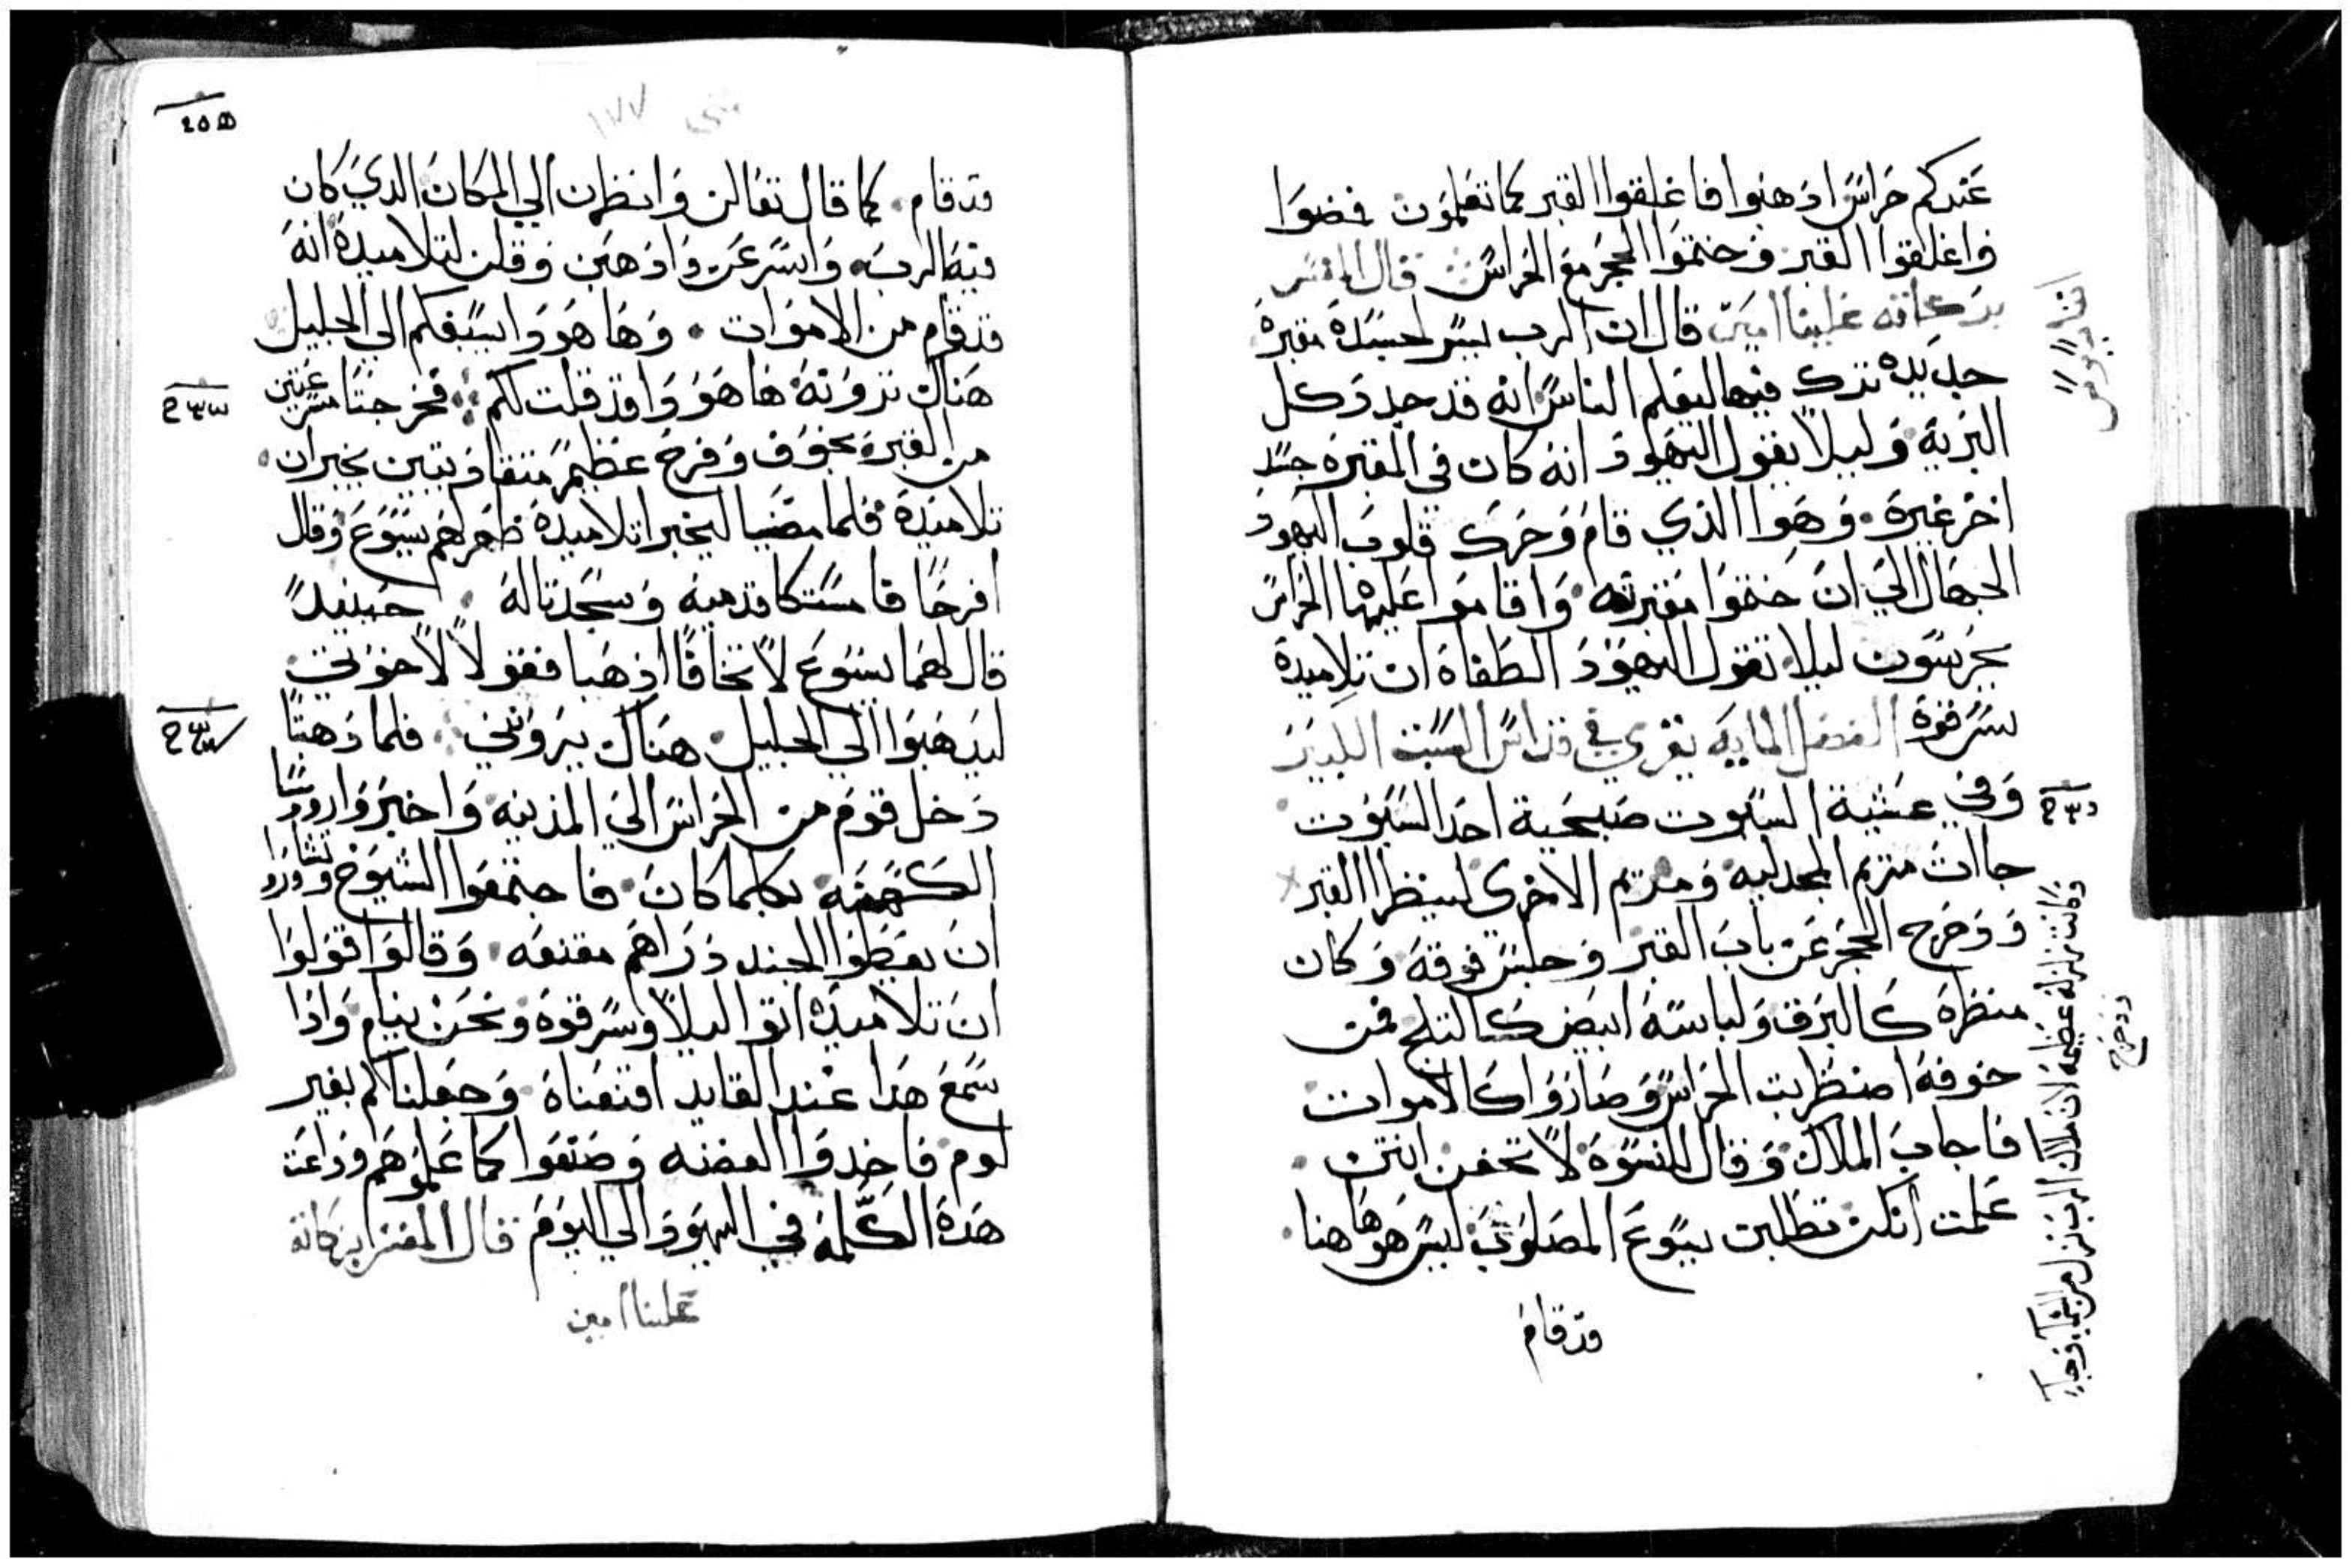 عندكم حراس ادهبوا فاغلقوا القبر كما تعلمون فمضوا
واغلقوا القبر وختموا الحجر مع الحراس قال المفسر
بركاته علينا امين قال ان الرب يسر لجسده مقبرة
جديده ترك فيها ليعلم الناس انه قد جدد كل
البرية وليلا يقول اليهود انه كان في المقبره جسد
اخر غيره وهوا الذي قام وحرك قلوب اليهود
الجهال الي ان ختموا مقبرته واقاموا عليها الحراس
يحرسون ليلا تقول اليهود الطغاه ان تلاميده
سرقوه الفصل المايه يقري في قداس السبت الكبير
وفي عشية السبوت صبحية احد السبوت
جاات مريم المجدليه ومريم الاخري لينظرا القبر
ودحرج الحجر عن باب القبر وجلس فوقه وكان
منظره كالبرق ولباسه ابيض كالتلج فمن
خوفه اضطربت الحراس وصاروا كالاموات
فاجاب الملاك وقال للنسوه لا تخفن انتن
علمت انكن تطلبن يسوع المصلوب ليس هو هاهنا
قد قام
وكانت زلزله عظيمه لان ملاك الرب نزل من السما وجا
ودحرج
متي ١٧٧
قد قام كما قال تعالن وانظرن الي المكان الدي كان
فيه الرب واسرعن وادهبن وقلن لتلاميده انه
قد قام من الاموات وها هودا يسبقكم الي الجليل
هناك ترونه ها هودا قد قلت لكم فخرجتا مسرعتين
من القبر بخوف وفرح عظيم متعاديتين يخبران
تلاميده فلما مضيا ليخبرا تلاميده ظهر لهم يسوع وقال
افرحا فامستكا قدميه وسجدتا له حينيد
قال لهما يسوع لا تخافا ادهبا فقولا لاخوتي
ليدهبوا الي الجليل هناك يروني فلما دهبتا
دخل قوم من الحراس الي المدينه واخبروا روسا
الكهنه بكلما كان فاجتمعوا الشيوخ وتشاوروا
ان يعطوا الجند دراهم مقنعه وقالوا قولوا
ان تلاميده اتوا ليلا وسرقوه ونحن نيام وادا
سمع هدا عند القايد اقنعناه وجعلناكم بغير
لوم فاخدوا الفضه وصنعوا كما علموهم وداعت
هده الكلمه في اليهود الي اليوم قال المفسر بركاته
علينا امين